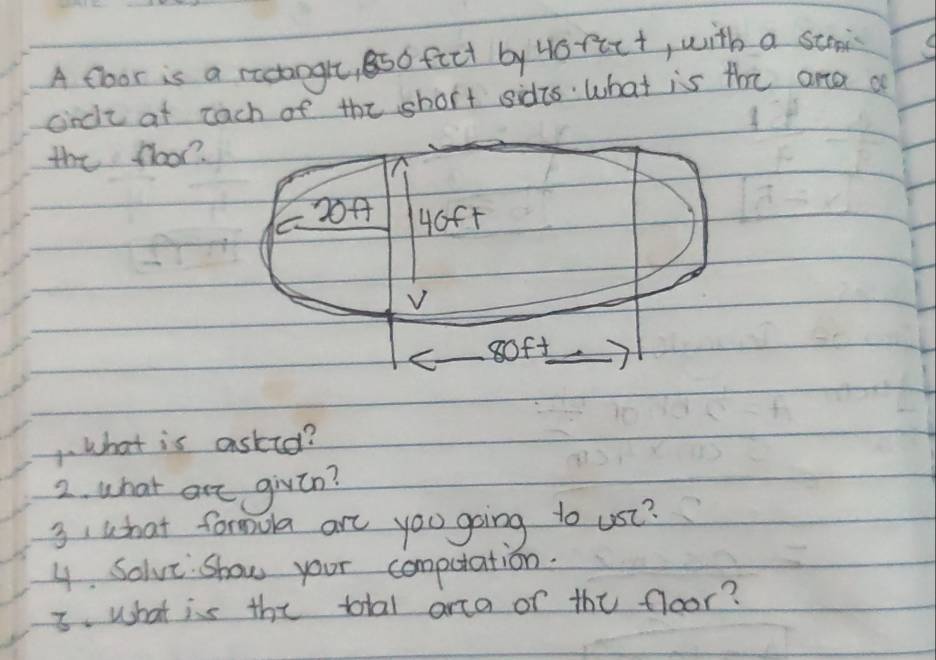 A floor is a rectangle, 80 feet by 40 feet, with a semi-
circle at each of the short sides. What is the area of
the floor?
20ft
40ft
80ft
1. What is asked?
2. What are given?
3. What formula are you going to use?
4. Solve. Show your computation.
5. What is the total area of the floor?